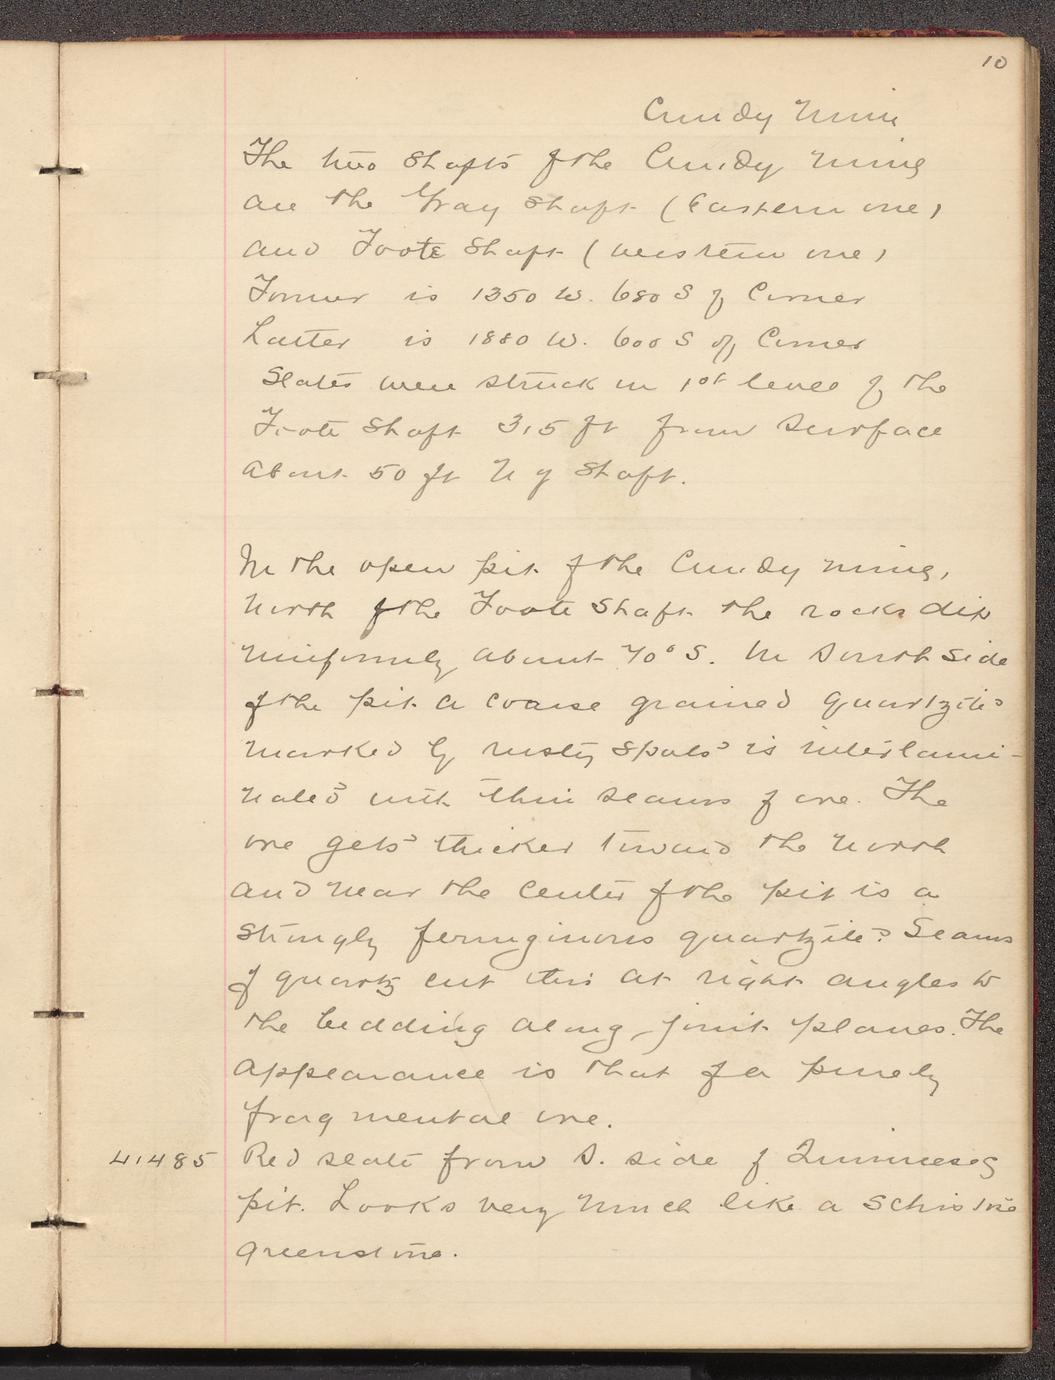 10
Cundy Mine
The two shafts of the Cundy Mine
are the Gray Shaft (Eastern one)
and Foote Shaft (western one)
Former is 1350 W. 680 S of Corner
Latter is 1880 W. 600 S of Corner
Slates were struck in 1st level of the
Foote Shaft 315 ft from surface
about 50 ft N of Shaft.
In the open pit of the Cundy mine,
North of the Foote Shaft the rocks dip
uniformly about 70° S. In South side
of the pit a coarse grained quartzite
marked by rusty spots is interlami-
nated with thin seams of ore. The
ore gets thicker toward the North
and near the center of the pit is a
strongly ferruginous quartzite. Seams
of quartz cut this at right angles to
the bedding along joint planes. The
appearance is that of a purely
fragmental one.
41485 Red slate from S. side of Quinnesec
pit. Looks very much like a schistose
greenstone.